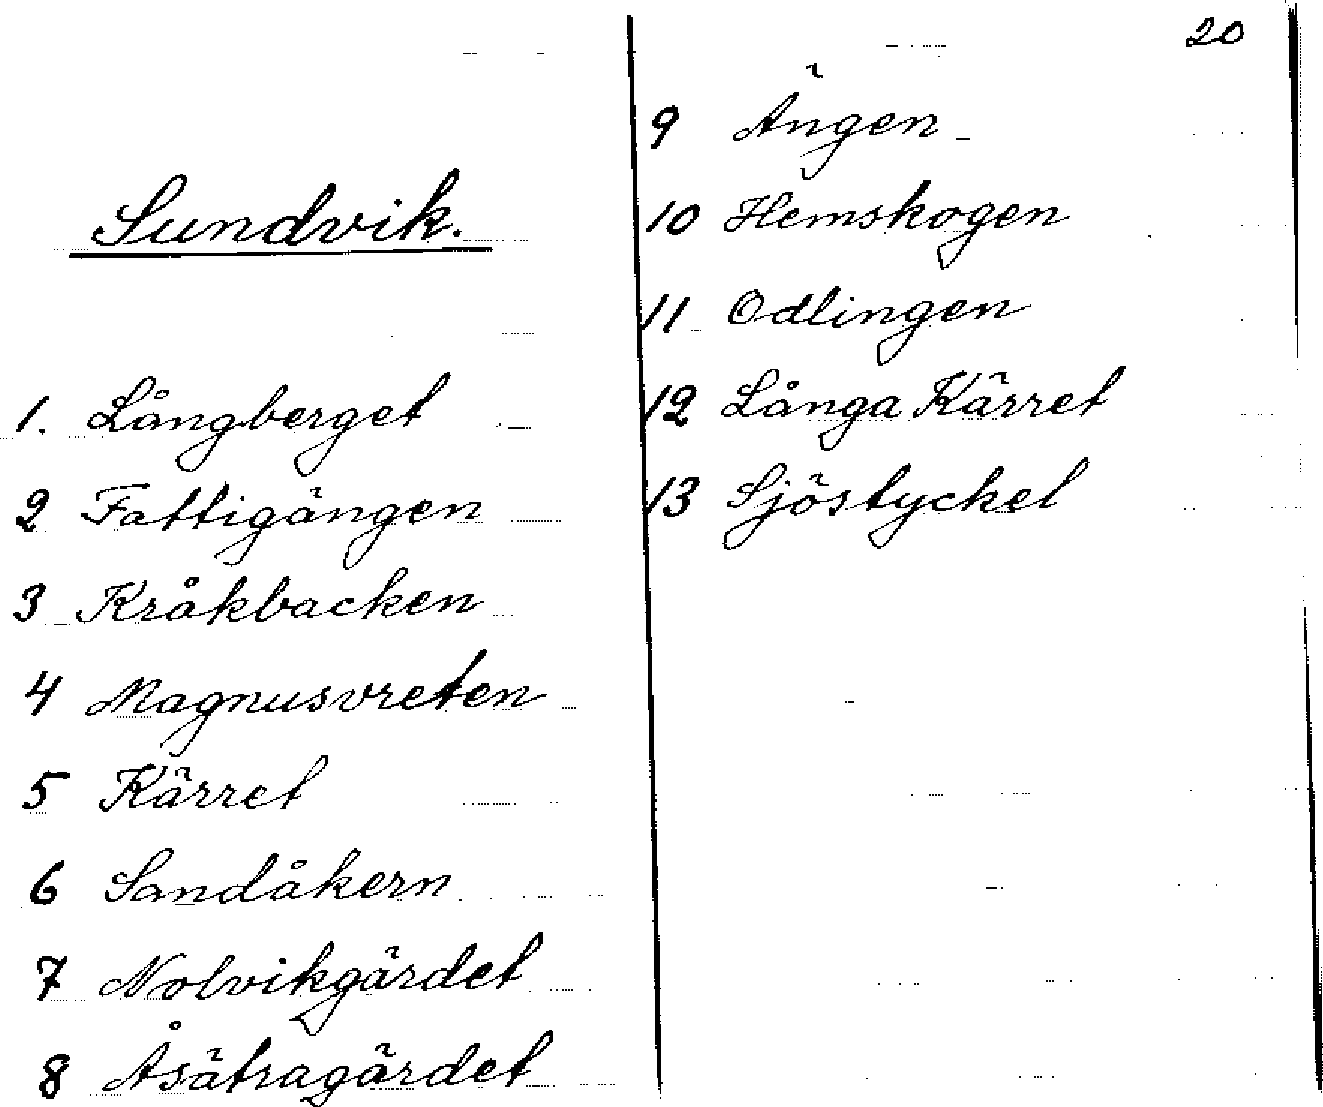 20
Sundvik.
1. Långberget
2 Fattigängen
3 Kråkbacken
4 Magnusvreten
5 Kärret
6 Sandåkern
7 Nolvikgärdet
8 Åsätragärdet
9 Ängen
10 Hemskogen
11 Odlingen
12 Långa Kärret
13 Sjöstycket